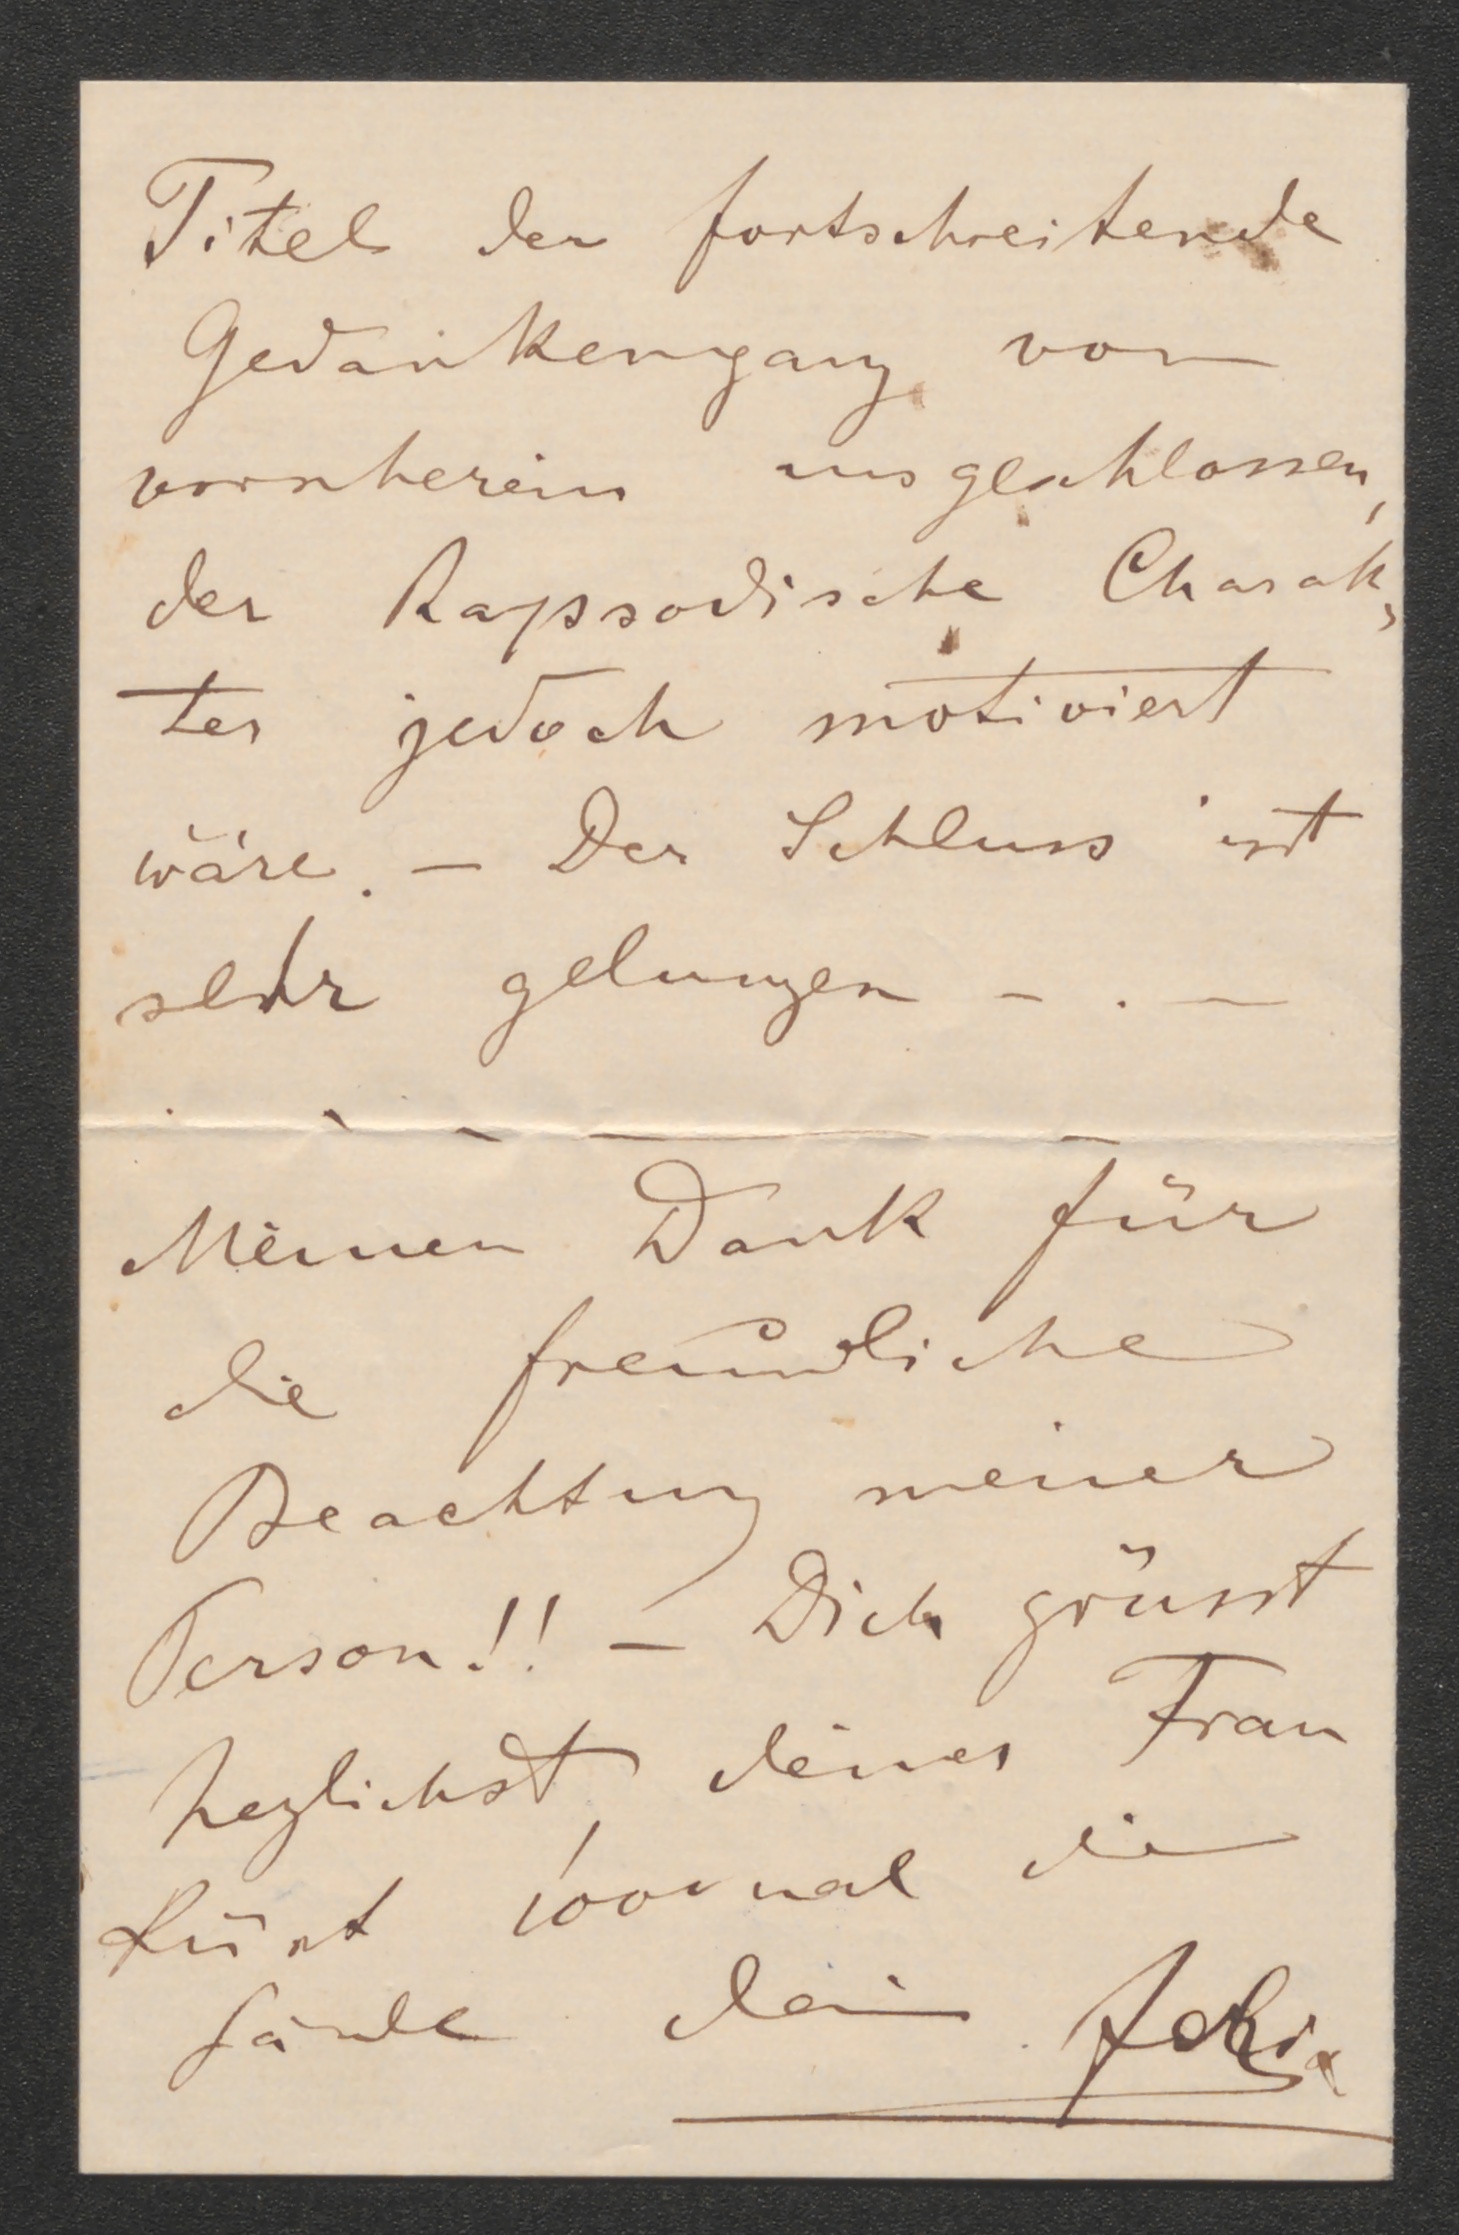 Titel der fortschreitende
Gedankengang von
vornherein ausgeschlossen,
der Rapsodische Charak-
ter jedoch motiviert
wäre. – Der Schluss ist
sehr gelungen – . –
Meinen Dank für
die freundliche
Beachtung meiner
Person!! – Dich grüsst
herzlichst, deiner Frau
küsst 1000mal die
Hände dein Felix